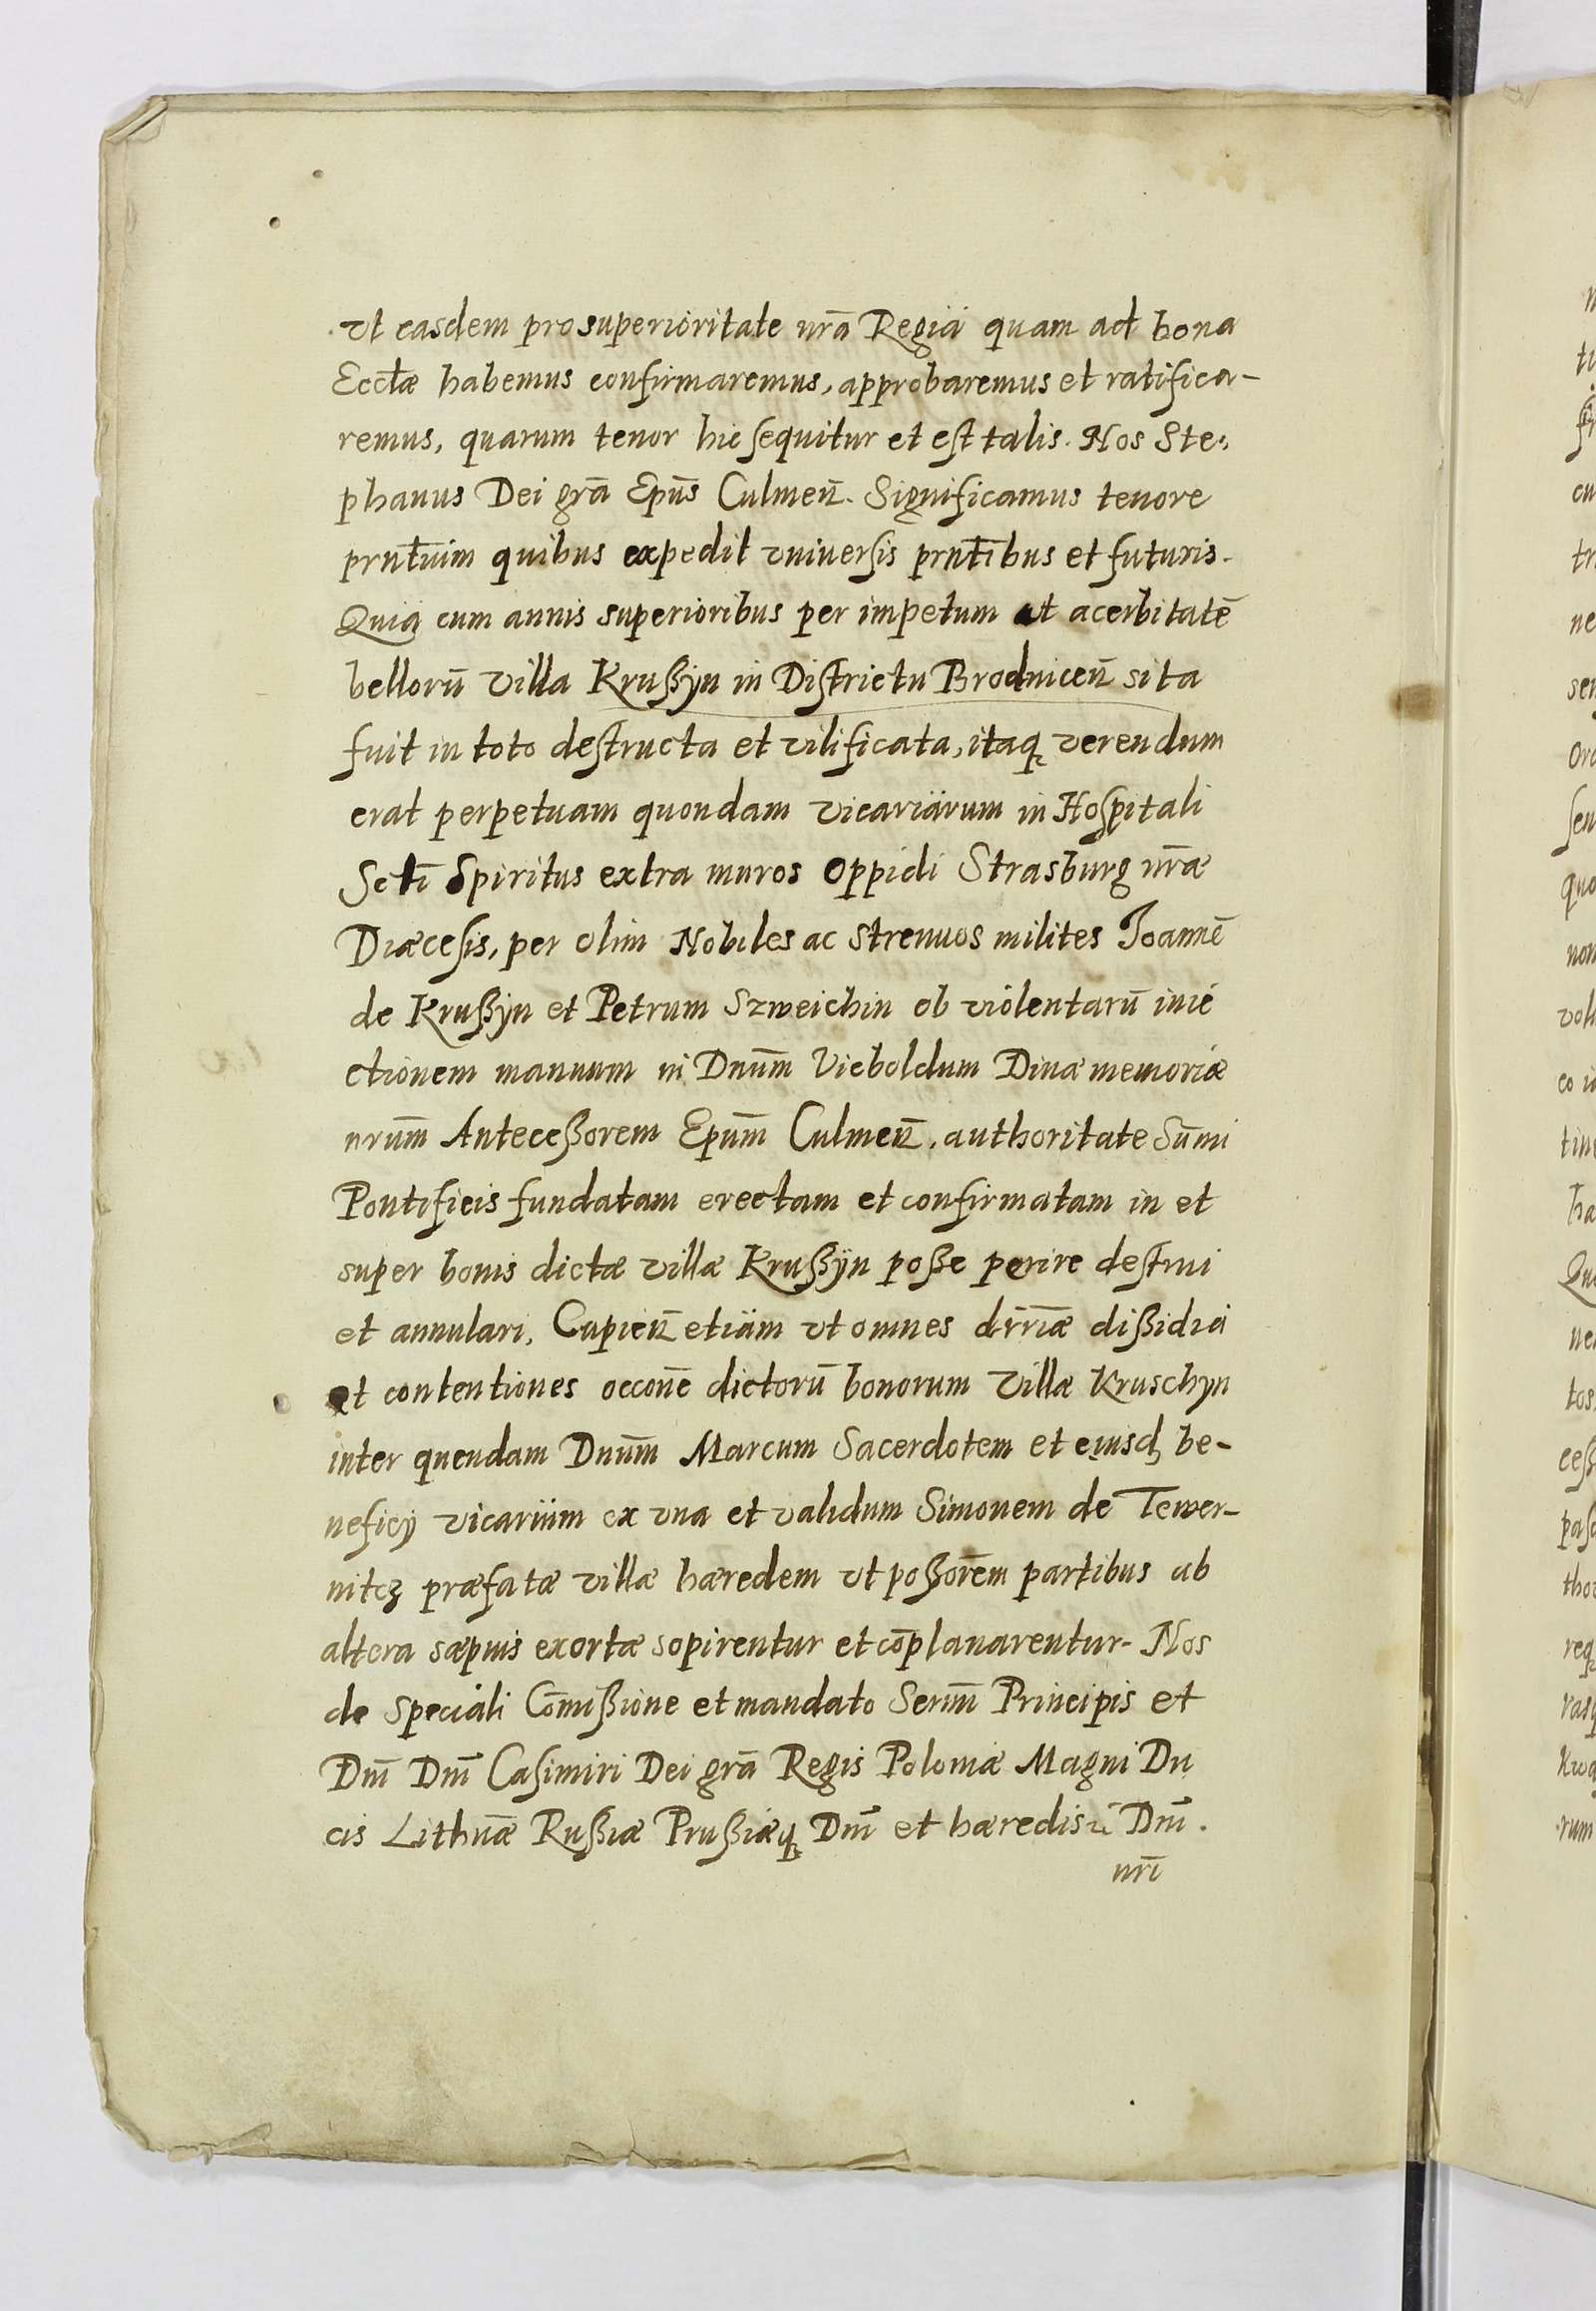 Vt easdem pro superioritate nrã Regia quam ad bona
Ecctæ habemus confirmaremus, approbaremus et ratifica-
remus, quarum tenor hic sequitur et est talis. Nos Ste:
phanus Dei grã Epũs Culmeñ. Significamus tenore
prñtium quibus expedit vniversis prñtibus et futuris.
Quia cum annis superioribus per impetum et acerbitatẽ
bellorũ villa Krußyn in Districtu Brodniceñ sita
fuit in toto destructa et vilificata, itaq verendum
erat perpetuam quondam vicariarum in Hospitali
Scti Spiritus extra muros oppidi Strasburg nr̃æ
Diæcesis, per olim Nobiles ac strenuos milites Joannẽ
de Krußyn et Petrum Szweichin ob violentarũ inie
ctionem manuum in Dnũm Vicboldum Divæ memoriæ
nrũm Anteceßorem Epũm Culmeñ. authoritate Sũmi
Pontificis fundatam erectam et confirmatam in et
super bonis dictæ villæ Krußyn poße perire destrui
et annulari, Cupieñ etiam vt omnes drr̃iæ dißidia
et contentiones occõne dictorũ bonorum Villæ Kruschyn
inter quendam Dnũm Marcum Sacerdotem et eiusdꝫ be-
neficÿ vicarium ex vna et validum Simonem de Tewer-
nitcz præfatæ villæ hæredem vt poßorẽm partibus ab
altera sæpius exortæ sopirentur et cõplanarentur. Nos
de speciali Cõmißione et mandato Serm̃i Principis et
Dñi Dñi Casimiri Dei grã Regis Poloniæ Magni Du
cis Lithũæ Rußiæ Prußiæq Dñi et hæredis Dñi.
nrĩ